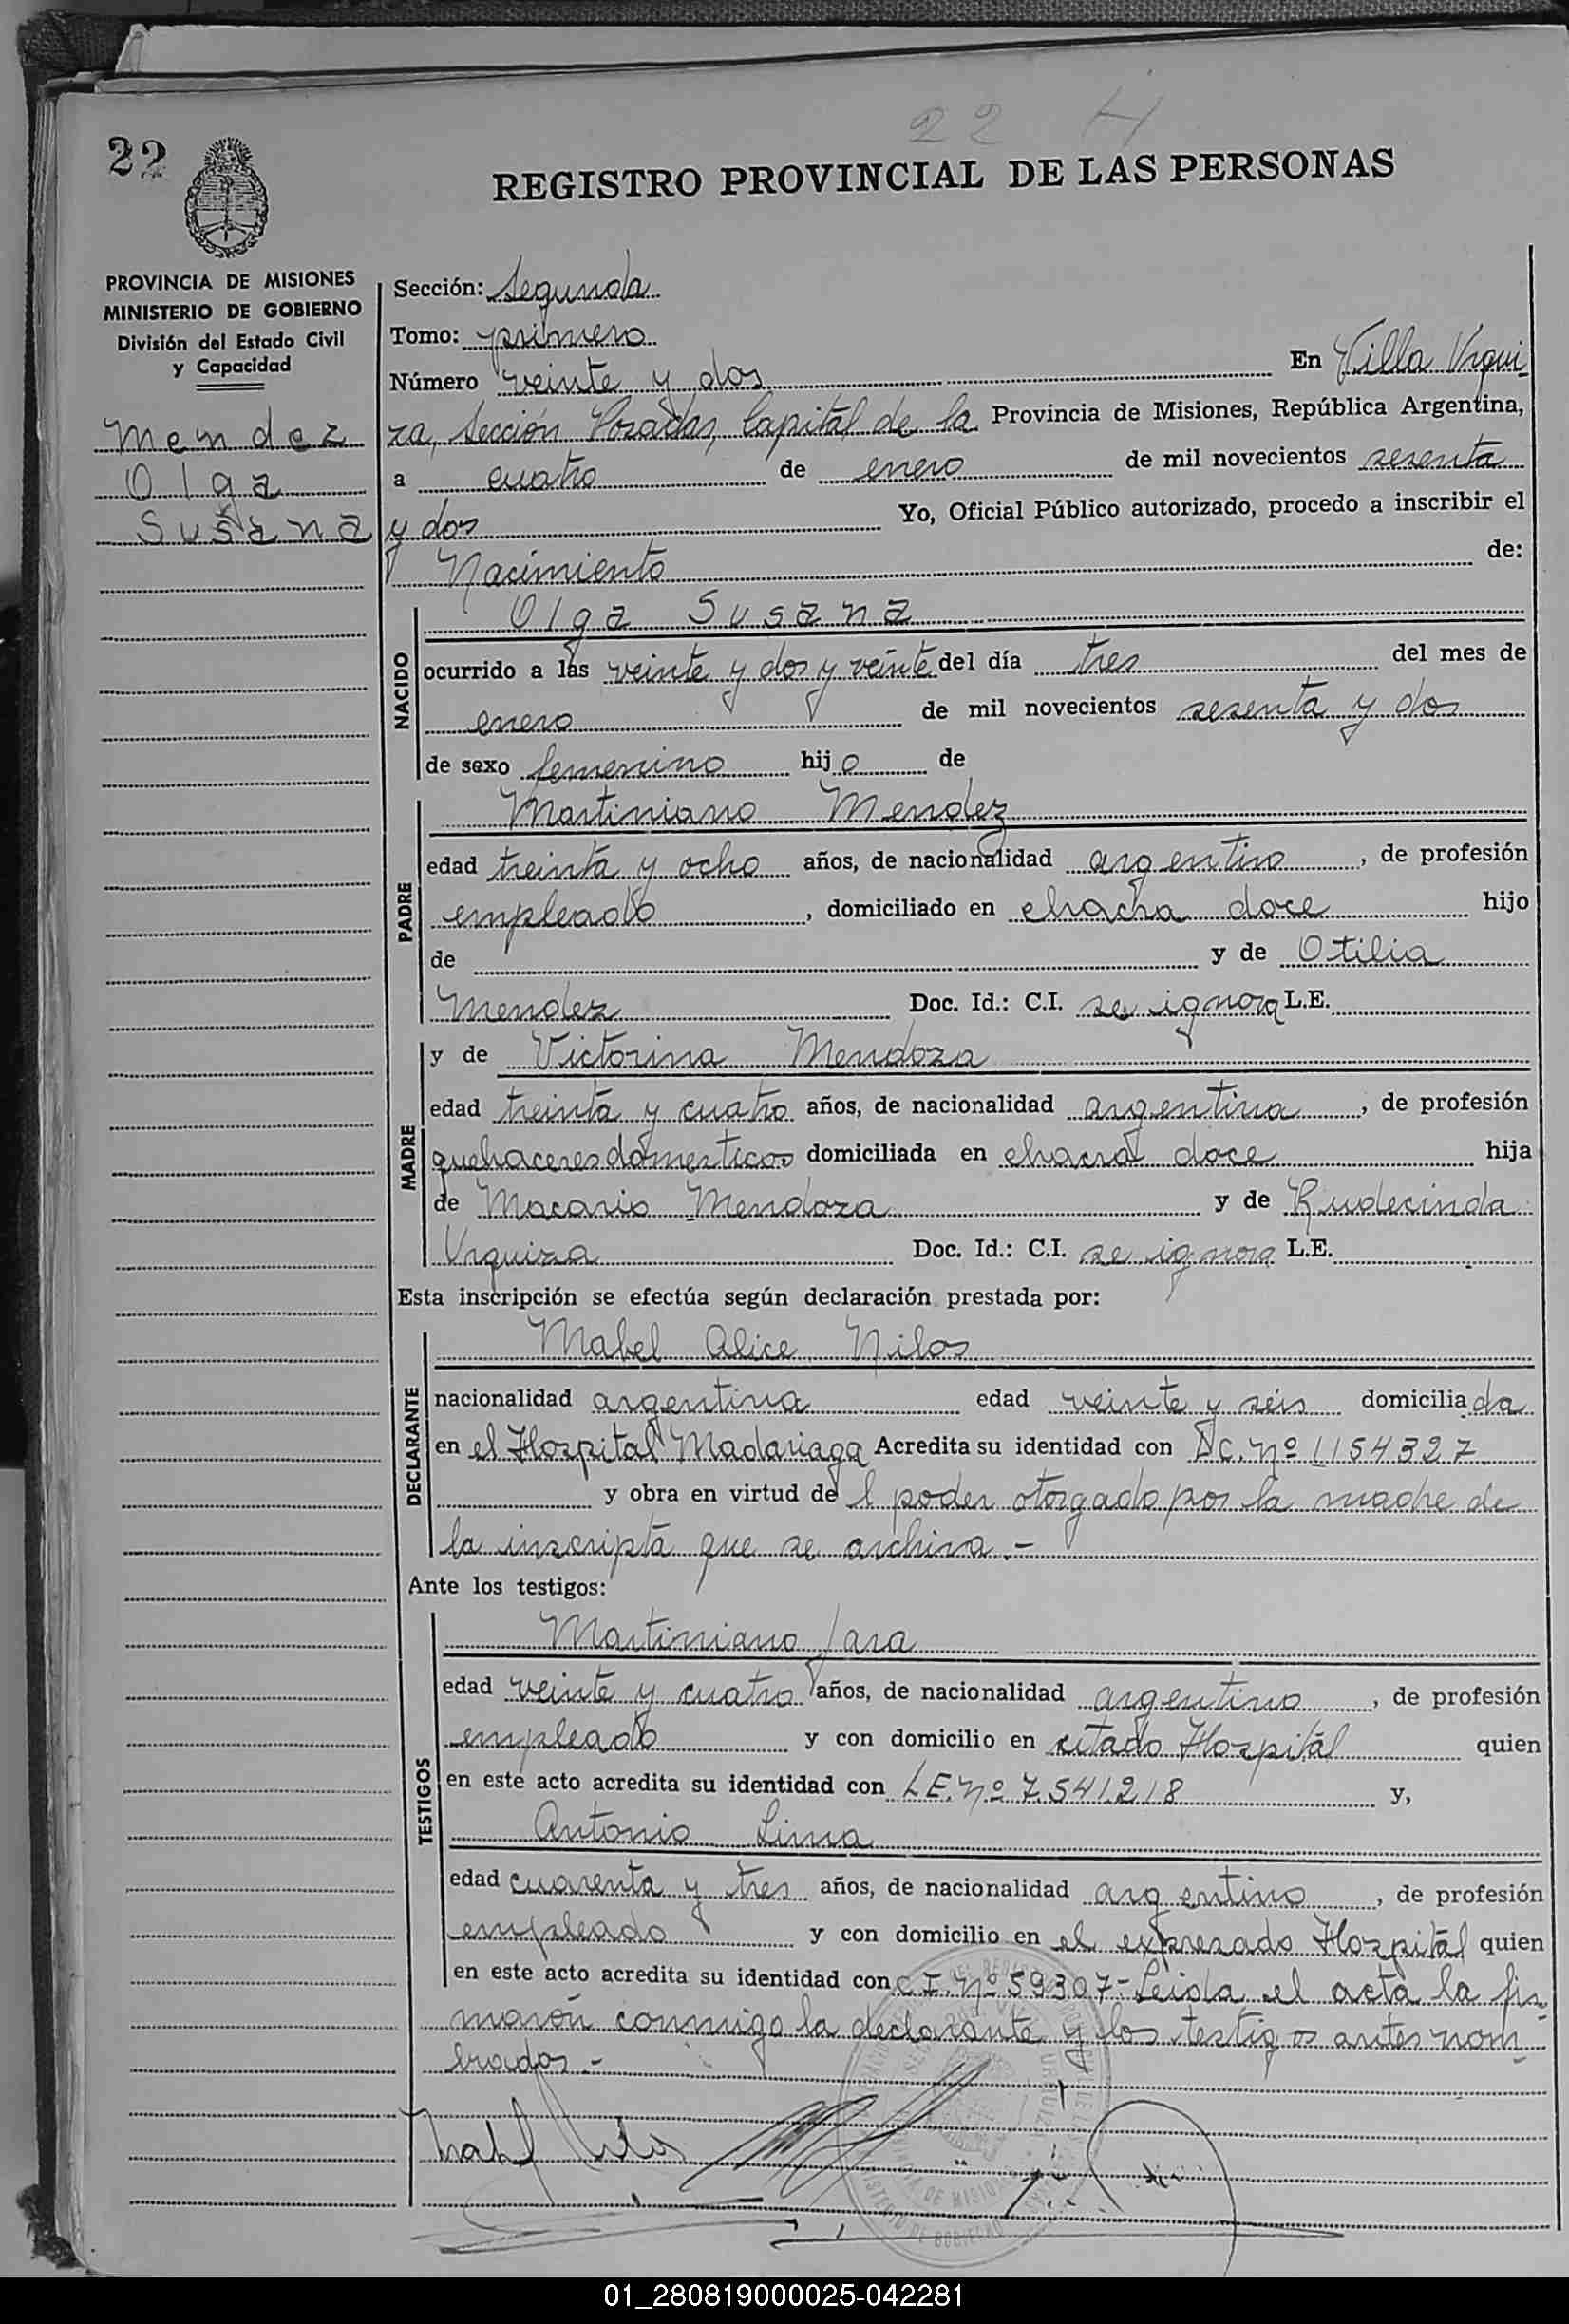 22 H
22
REGISTRO PROVINCIAL DE LAS PERSONAS
PROVINCIA DE MISIONES
MINISTERIO DE GOBIERNO
División del Estado Civil
y Capacidad
Mendez
Olga
Susana
Sección: Segunda
Tomo: primero
Número veinte y dos En Villa Urqui-
za, Sección Posadas, Capital de la Provincia de Misiones, República Argentina,
a cuatro de enero de mil novecientos sesenta
y dos Yo, Oficial Público autorizado, procedo a inscribir el
Nacimiento de:
NACIDO
Olga Susana
ocurrido a las veinte y dos y veinte del día tres del mes de
enero de mil novecientos sesenta y dos
de sexo femenino hijo de
PADRE
Martiniano Mendez
edad treinta y ocho años, de nacionalidad argentino, de profesión
empleado, domiciliado en chacra doce hijo
de y de Otilia
Mendez Doc. Id.: C.I. se ignora L.E.
MADRE
y de Victorina Mendoza
edad treinta y cuatro años, de nacionalidad argentina, de profesión
quehaceres domesticos domiciliada en chacra doce hija
de Macario Mendoza y de Rudecinda
Urquiza Doc. Id.: C.I. se ignora L.E.
Esta inscripción se efectúa según declaración prestada por:
DECLARANTE
Mabel Alice Nilos
nacionalidad argentina edad veinte y séis domiciliada
en el Hospital Madariaga Acredita su identidad con D.C. Nº 1154327
y obra en virtud del poder otorgado por la madre de
la inscripta que se archiva.-
Ante los testigos:
TESTIGOS
Martiniano Jara
edad veinte y cuatro años, de nacionalidad argentino, de profesión
empleado y con domicilio en citado Hospital quien
en este acto acredita su identidad con L.E. Nº 7.541.218 y,
Antonio Lima
edad cuarenta y tres años, de nacionalidad argentino, de profesión
empleado y con domicilio en el expresado Hospital quien
en este acto acredita su identidad con C.I. Nº 59307- Leida el acta la fir-
maron conmigo la declarante y los testigos antes nom-
brados.-
Mabel Nilos
01_280819000025-042281